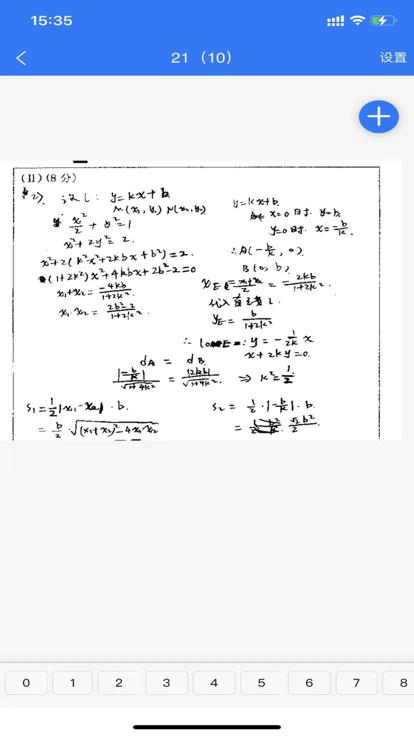 15:35
21 (10)
设置
(II) (8 分)
(2). 设 l: y=kx+b
M(x₁, y₁) N(x₂, y₂)
x²/2 + y²=1
x²+2y²=2.
x²+2(k²x²+2kbx+b²)=2.
(1+2k²)x²+4kbx+2b²-2=0
x₁+x₂= -4kb/1+2k².
x₁·x₂= 2b²-2/1+2k²
y=kx+b.
x=0时. y=b.
y=0时. x=-b/k.
∴A(-b/k, 0)
B(0, b)
x_E = x₁+x₂/2 = -2kb/1+2k².
代入直线 l.
y_E = b/1+2k²
∴ l_OE: y=-1/2k x
x+2ky=0.
d_A = d_B
|-b/k|/√1+4k² = |2kb|/√1+4k² ⇒ k²=1/2
S₁=1/2|x₁-x₂|·b.
= b/2·√(x₁+x₂)²-4x₁x₂
S₂= 1/2·|-b/k|·b.
= √2b²/2
0 1 2 3 4 5 6 7 8